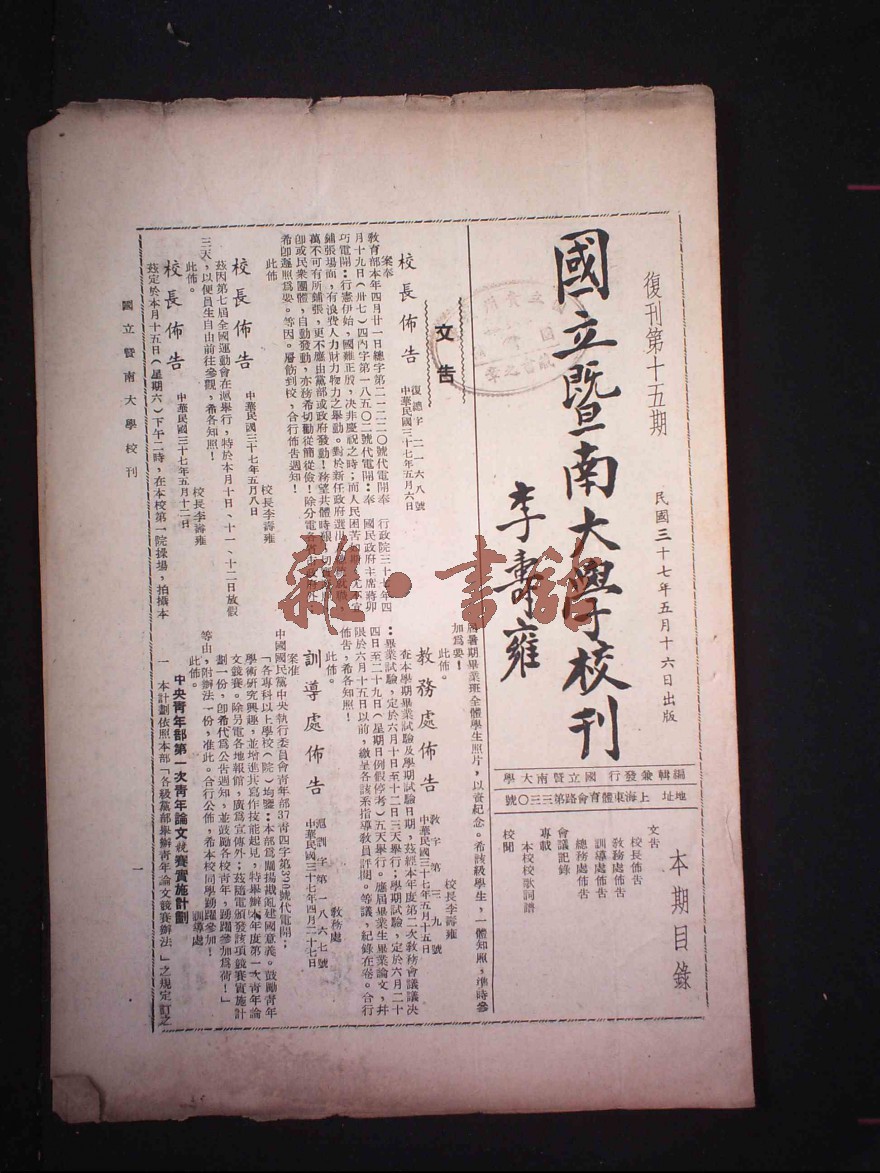 復刊第十五期
民國三十七年五月十六日出版
國立暨南大學校刊
李壽雍
編輯兼發行 國立暨南大學
地址 上海東體育會路第三三〇號
本期目錄
文告
校長佈告
教務處佈告
訓導處佈告
總務處佈告
會議記錄
專載
本校校歌詞譜
校聞
文告
校長佈告
復總字二一六八號
中華民國三十七年五月六日
案奉
教育部本年四月廿一日總字第二一二二〇號代電開奉 行政院三十七年四
月十九日(卅七)四內字第一八五〇二號代電開:奉 國民政府主席蔣卯
巧電開:行憲伊始,國難正殷,決非慶祝之時;而人民困苦
鋪張場面,有浪費人力財力物力之舉動。對於新任政府選出
萬不可有所鋪張,更不應由黨部或政府發動!務望共體時艱,切
卽或民衆團體,自動發動,亦務希切勸從簡從儉!除分電各省市政府外,
希卽遵照爲要。等因。屬飭到校,合行佈告週知!
此佈
校長李壽雍
校長佈告
中華民國三十七年五月八日
茲因第七屆全國運動會在滬舉行,特於本月十日、十一、十二日放假
三天,以便員生自由前往參觀,希各知照!
此佈。
校長李壽雍
校長佈告
中華民國三十七年五月十二日
茲定於本月十五日(星期六)下午二時,在本校第一院操場,拍攝本
屆暑期畢業班全體學生照片,以資紀念。希該級學生,一體知照,準時參
加爲要!
此佈。
校長李壽雍
教務處佈告
教字第三九號
中華民國三十七年五月十五日
查本學期畢業試驗及學期試驗日期,茲經本年度第二次敎務會議議決
:畢業試驗,定於六月十日至十二日三天舉行;學期試驗,定於六月二十
四日至二十九日(星期日例假停考)五天舉行。應屆畢業生畢業論文,幷
限於六月十五日以前,繳呈各該系指導敎員評閱。等議,紀錄在卷。合行
佈告,希各知照!
此佈。
敎務處
訓導處佈告
滬訓字第一八六七號
中華民國三十七年四月二十七日
案准
中國國民黨中央執行委員會靑年部37靑四字第390號代電開;
「各專科以上學校(院)均鑒:本部爲闡揚戡亂建國意義。鼓勵靑年
學術研究興趣,並增進其寫作技能起見,特舉辦本年度第一次靑年論
文競賽。除另電各地報館,廣爲宣傳外;茲隨電頒發該項競賽實施計
劃一份,卽希代爲公告週知,並鼓勵各校靑年,踴躍參加爲荷!」
等由,附辦法一份,准此。合行公佈,希本校同學踴躍參加!
此佈。
訓導處
中央靑年部第一次靑年論文競賽實施計劃
一 本計劃依照本部「各級黨部舉辦靑年論文競賽辦法」之規定訂之
國立暨南大學校刊
一
雜·書館